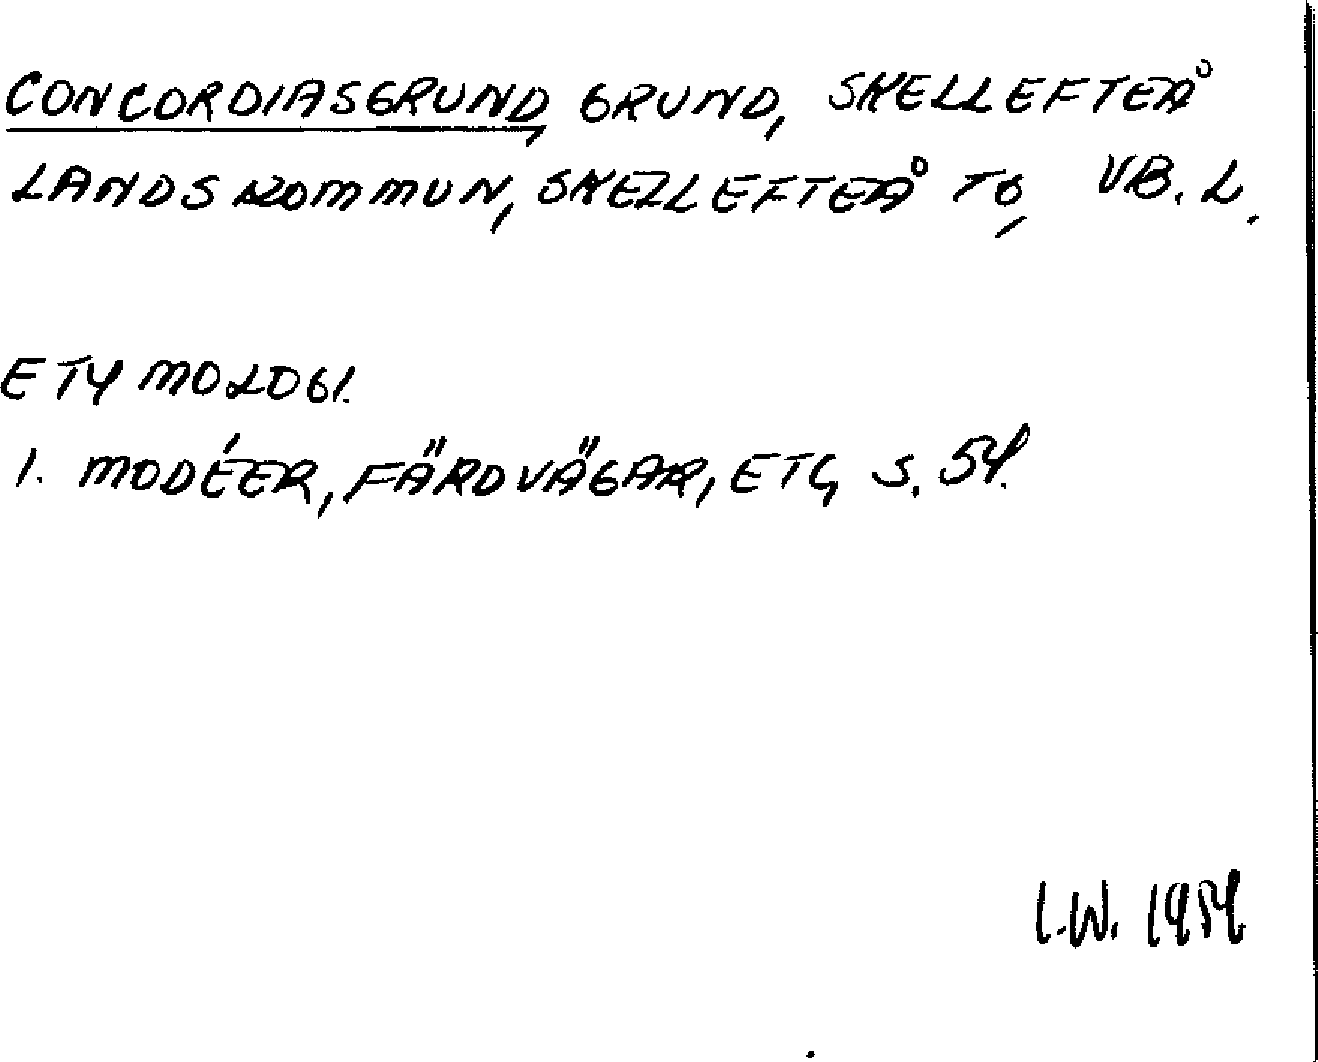 CONCORDIASGRUND, GRUND, SKELLEFTEÅ
LANDSKOMMUN, SKELLEFTEÅ TG, VB. L.
ETYMOLOGI.
1. MODÉER, FÄRDVÄGAR, ETC, S. 54.
I.W. 1954